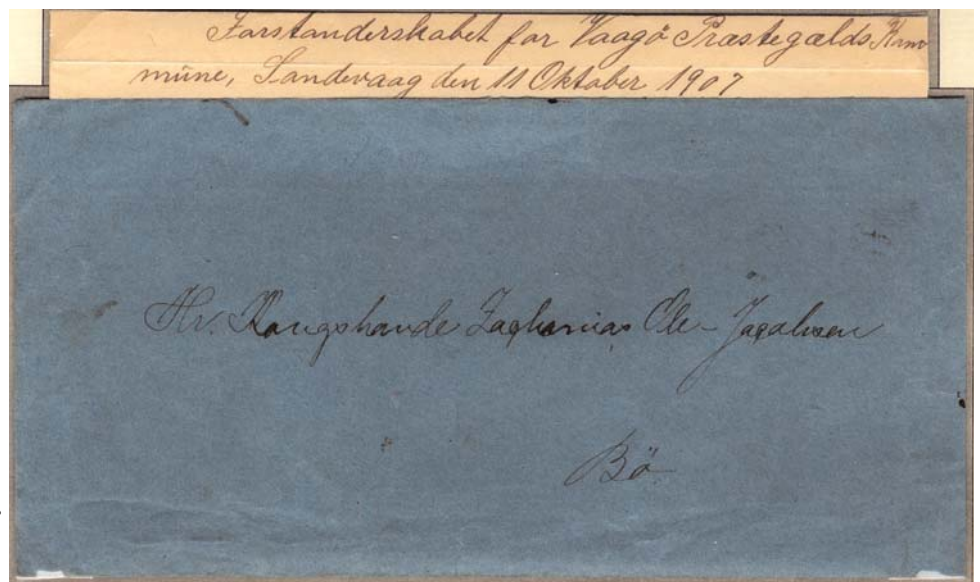 Forstanderskabet for Vaagö Præstegælds Kom
müne, Sandevaag den 11 Oktober 1907
Hr. Kongsbonde Zacharias Ole- Jacobsen
Bö